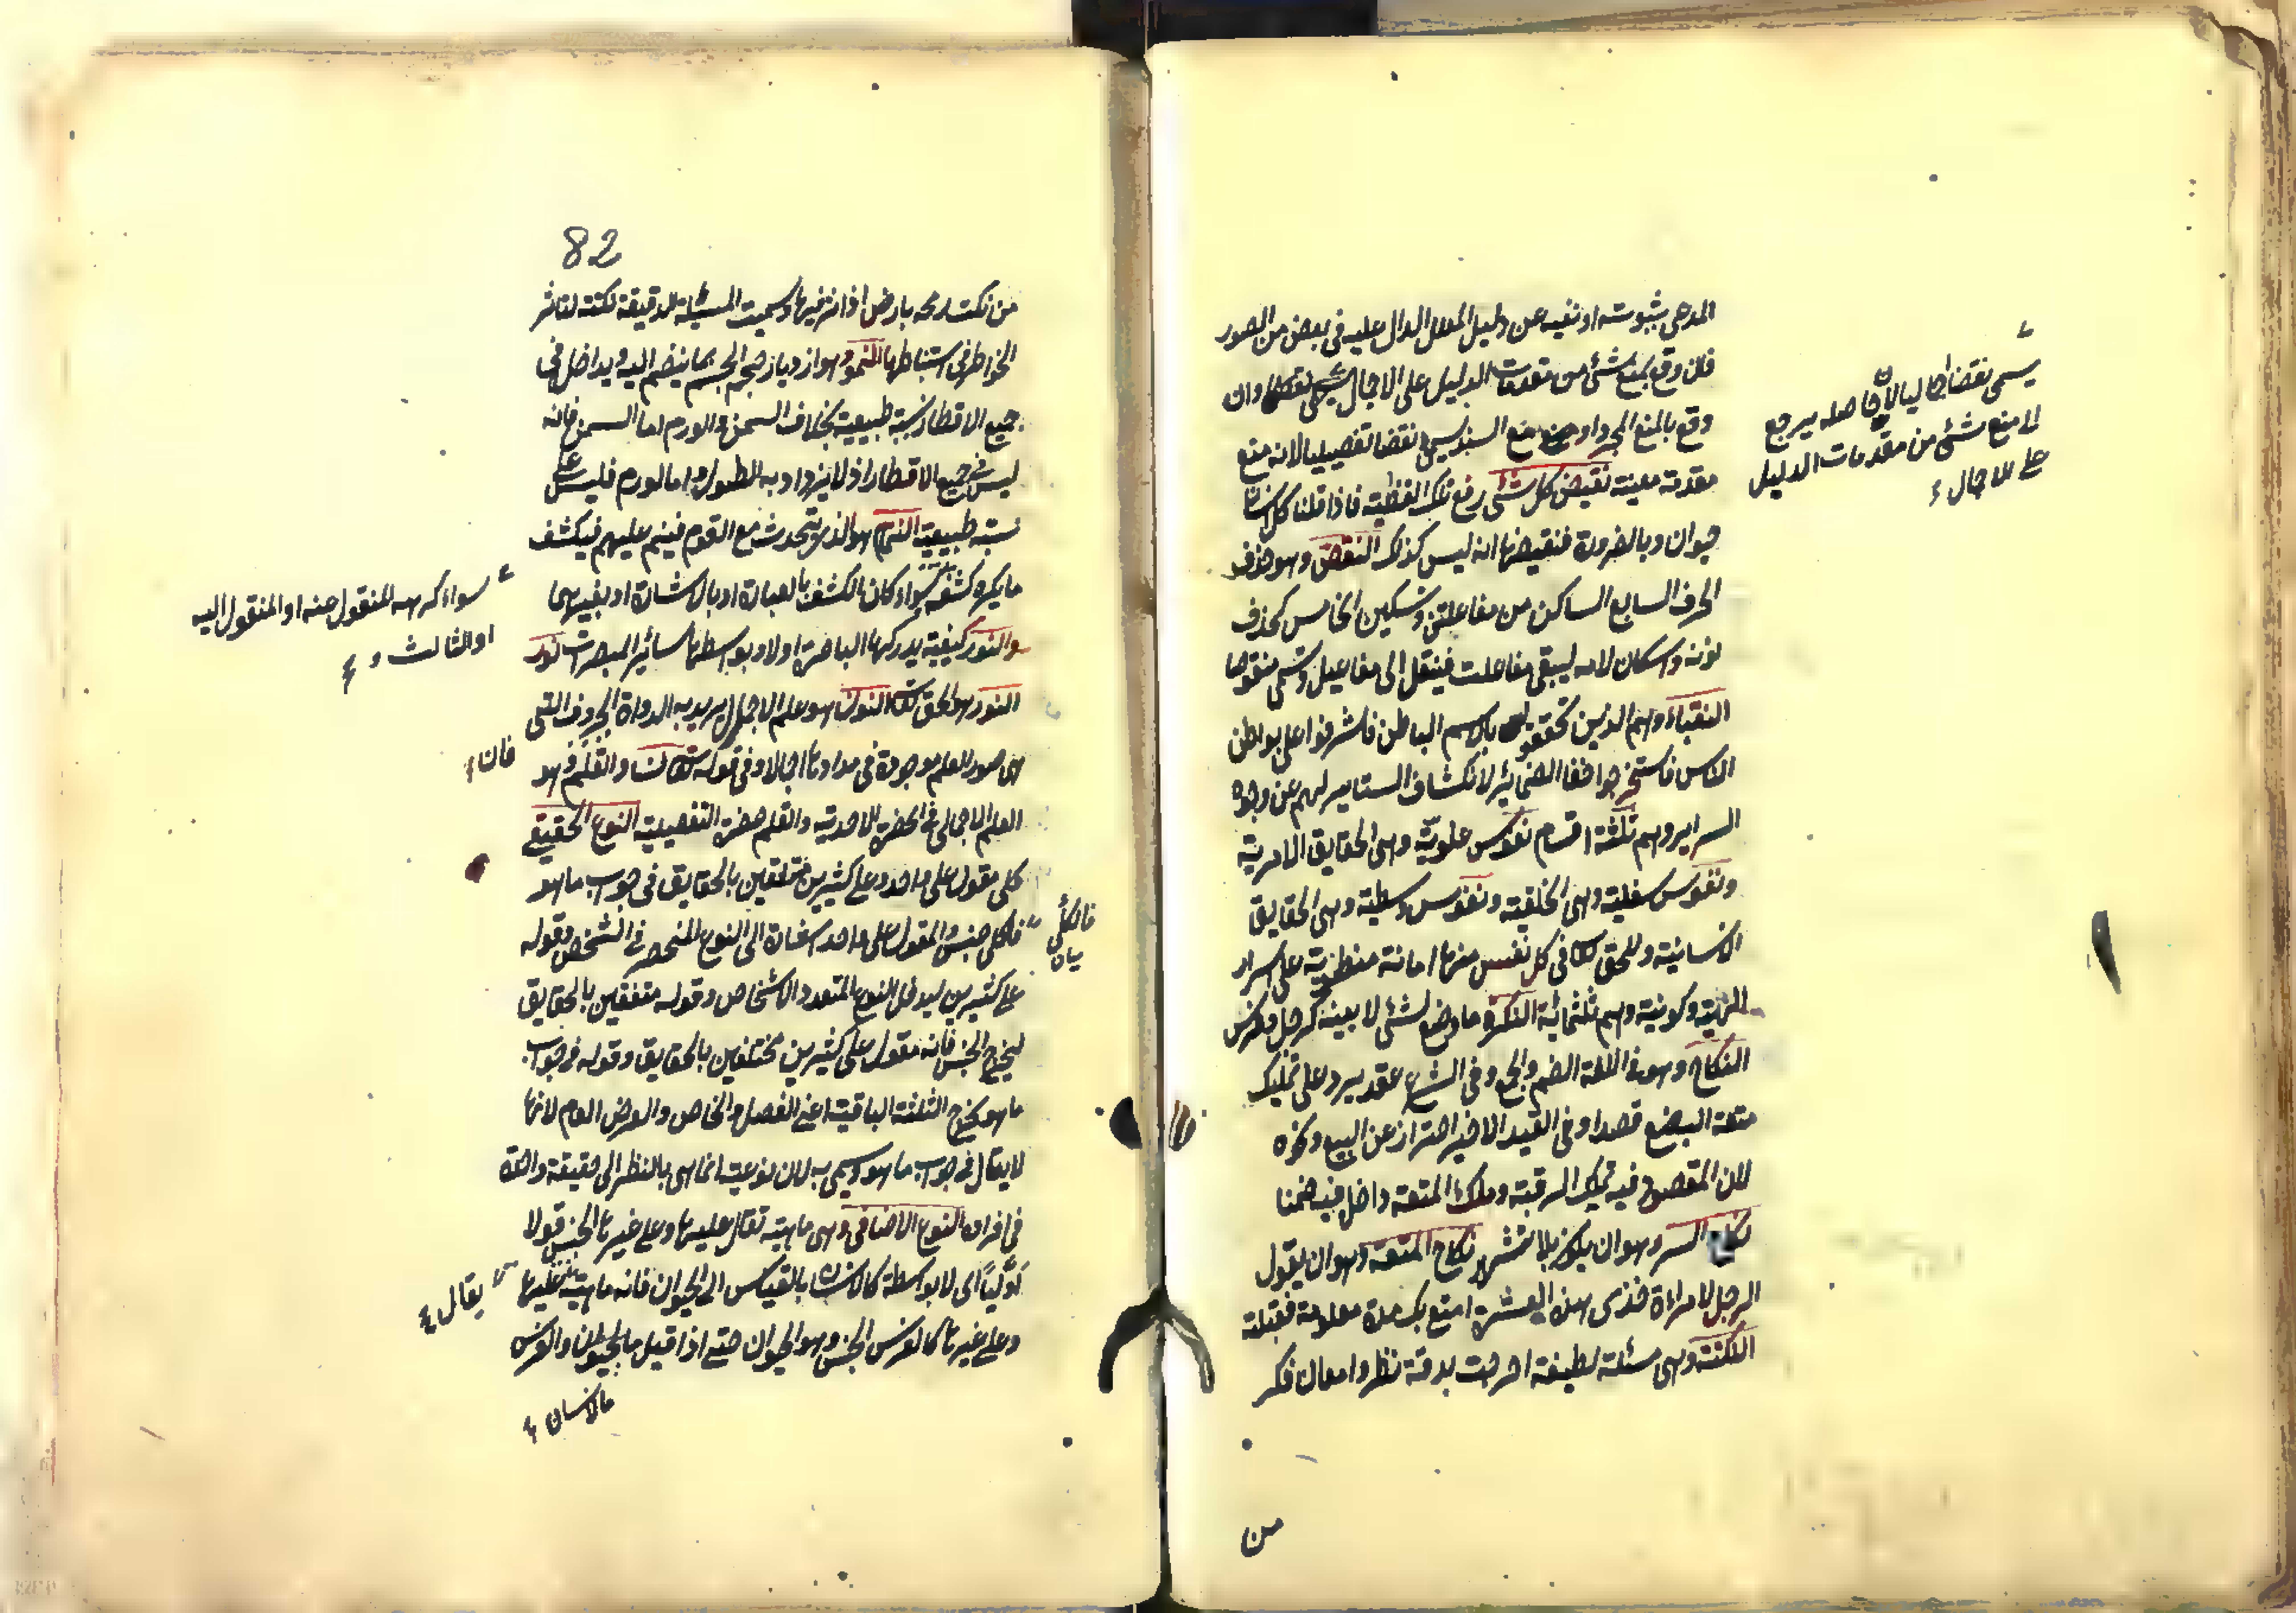 المدعى ثبوته او نفيه عن دليل المعلل الدال عليه فى بعض من الصور
فان وقع بمنع شئ من مقدمات الدليل على الاجمال وان
وقع بالمنع المجرد او مع السند يسمى نقضا تفصيليا لانه منع
مقدمة معينة نقيض كل شئ رفع تلك القضية فاذا قلنا كل انسان
حيوان وبالضرورة فنقيضها انه ليس كذلك النقص وهو حذف
الحرف السابع الساكن من مفاعلتن وتسكين الخامس كحذف
نونه واسكان لامه ليبقى مفاعلت فينقل الى مفاعيل وتسمى منقوصا
النقباء وهم الذين تحققوا بالاسم الباطن فاشرفوا على بواطن
الناس فاستخرجوا خفايا الضمائر لانكشاف الستاير لهم عن وجوه
السراير وهم ثلثة اقسام نفوس علوية وهى الحقايق الامرية
ونفوس سفلية وهى الخلقية ونفوس وسطية وهى الحقايق
الانسانية وللحق تعالى فى كل نفس منها امانة منطوية على اسرار
الهية وكونية وهم ثلثمائة النكرة ما وضع لشئ لا بعينه كرجل وفرس
النكاح وهو فى اللغة الضم والجمع وفى الشرع عقد يرد على تمليك
متعة البضع قصدا وفى القيد الاخير احتراز عن البيع ونحوه
لان المقصود فيه تمليك الرقبة وملك المتعة داخل فيه ضمنا
نكاح السر وهو ان يكون بلا تشهير نكاح المتعة وهو ان يقول
الرجل لامراءة خذى هذه العشرة امتع بك مدة معلومة فقبلته
النكتة وهى مسئلة لطيفة اخرجت بدقة نظر وامعان فكر
من
يسمى نقضا اجماليا لان حاصله يرجع
الى منع شئ من مقدمات الدليل
على الاجمال
82
من نكت رمحه بارض اذا اثر فيها وسميت المسئلة الدقيقة نكتة لتاثر
الخواطر فى استنباطها النمو وهو ازدياد حجم الجسم بما ينضم اليه ويداخل فى
جميع الاقطار نسبة طبيعية بخلاف السمن والورم اما السمن فانه
ليس فى جميع الاقطار اذ لا يزداد به الطول واما الورم فليس على
نسبة طبيعية النمام هو الذى يتحدث مع القوم فينم عليهم فيكشف
ما يكره كشفه سواء كان الكشف بالعبارة او بالاشارة او بغيرهما
والنور كيفية يدركها الباصرة اولا وبواسطتها سائر المبصرات نور
النور هو الحق تعالى النون هو علم الاجمال يريد به الدواة الحروف التى
هى صور العلم موجودة فى مدادها اجمالا وفى قوله تعالى ن والقلم وهو
العلم الاجمالى فى الحضرة الاحدية والقلم حضرة التفصيلية النوع الحقيقى
كلى مقول على واحد وعلى كثيرين متفقين بالحقايق فى جواب ما هو
فالكلى جنس والمقول على واحد اشارة الى النوع المنحصر فى الشخص وقوله
على كثيرين ليدخل النوع المتعدد الاشخاص وقوله متفقين بالحقايق
ليخرج الجنس فانه مقول على كثيرين مختلفين بالحقايق وقوله فى جواب
ما هو يخرج الثلثة الباقية اعنى الفصل والخاص والعرض العام لانها
لا يقال فى جواب ما هو وسمى به لان نوعيته انما هى بالنظر الى حقيقة واحدة
فى افراده النوع الاضافى وهى ماهية تقال عليها وعلى غيرها الجنس قولا
اوليا اى لا بواسطة كالانسان بالقياس الى الحيوان فانه ماهية عليها
وعلى غيرها كالفرس الجنس وهو الحيوان حتى اذا قيل ما والفرس
ما الانسان
سواء كرهه المنقول عنه او المنقول اليه
او الثالث
فان
فالكلى
يقال